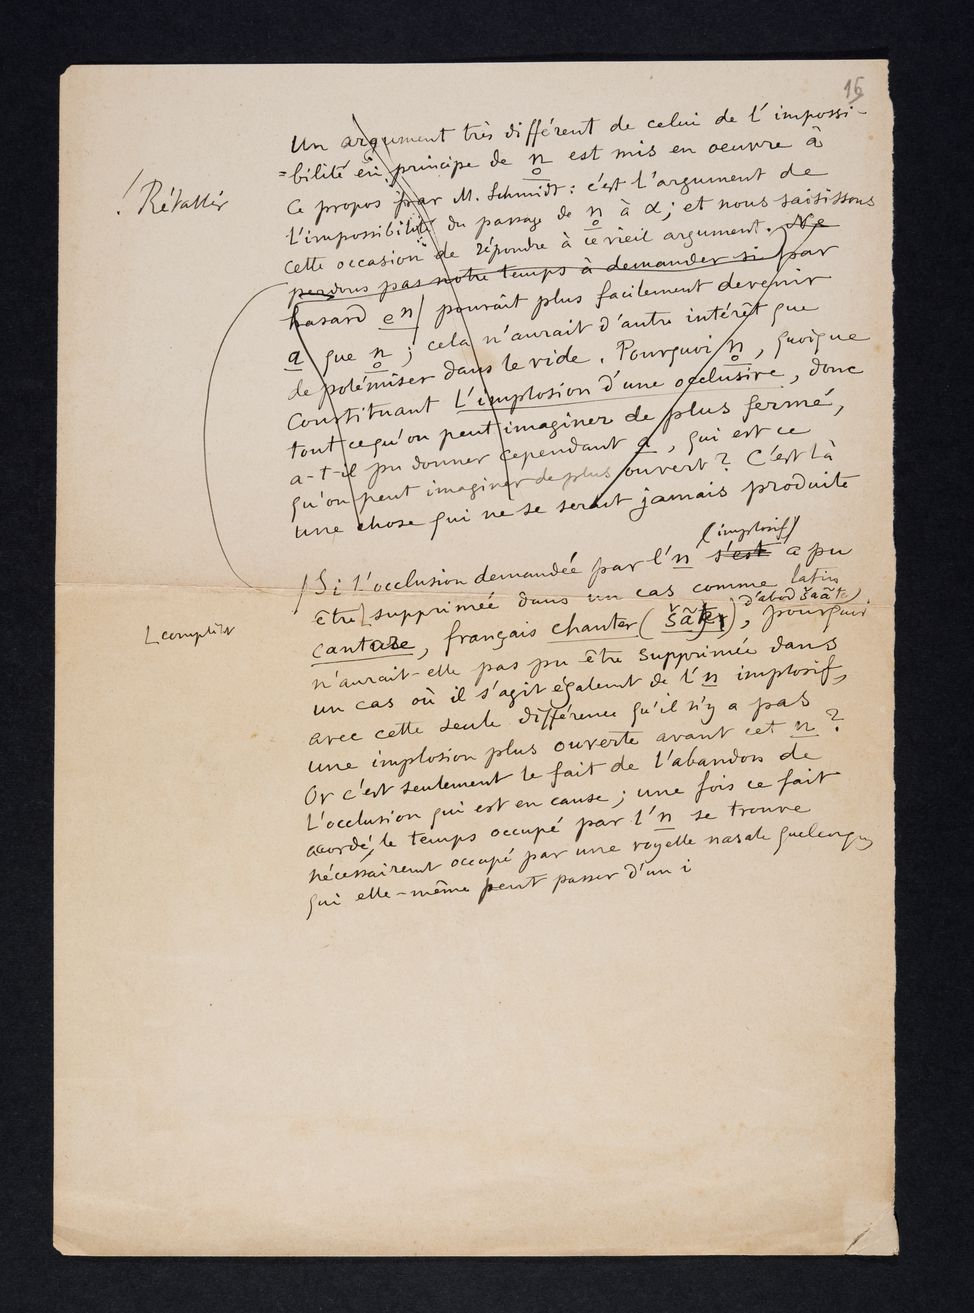 16
Un argument très différent de celui de l'impossi-
=bilité en principe de n̥ est mis en oeuvre à
! Rétablir
ce propos par M. Schmidt : c'est l'argument de
l'impossibilité du passage de n̥ à α; et nous saisissons
cette occasion de répondre à ce vieil argument. Ne
perdons pas notre temps à demander si par
hasard en pourrait plus facilement devenir
a que n̥ ; cela n'aurait d'autre intérêt que
de polémiser dans le vide. Pourquoi n̥, quoique
constituant l'implosion d'une occlusive, donc
tout ce qu'on peut imaginer de plus fermé,
a-t-il pu donner cependant a, qui est ce
qu'on peut imaginer de plus ouvert? C'est là
une chose qui ne se serait jamais produite
l'implosif
Si l'occlusion demandée par l'n s'est a pu
être [supprimée dans un cas comme latin
[complèt
d'abord šaãte)
cantare, français chanter (šãte), pourquoi
n'aurait-elle pas pu être supprimée dans
un cas où il s'agit également de l'n implosif,
avec cette seule différence qu'il n'y a pas
une implosion plus ouverte avant cet n?
Or c'est seulement le fait de l'abandon de
l'occlusion qui est en cause; une fois ce fait
accordé, le temps occupé par l'n se trouve
nécessairemt occupé par une voyelle nasale quelconque
qui elle-même peut passer d'un i